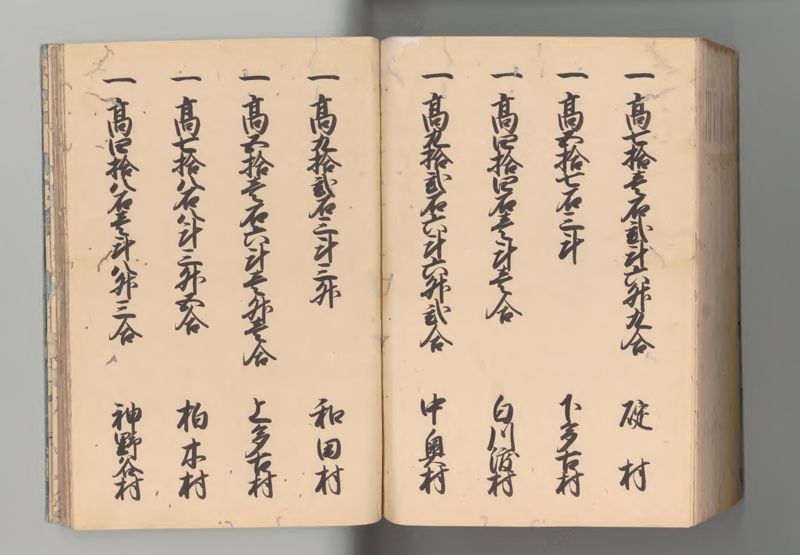 一 高七拾壱石弐斗六升九合 碇村
一 高五拾七石三斗 下多古村
一 高四拾四石壱斗壱合 白川渡村
一 高九拾弐石六斗六升弐合 中奥村
一 高九拾弐石三斗三升 和田村
一 高五拾壱石六斗壱升壱合 上多古村
一 高七拾八石八斗三升五合 柏木村
一 高四拾八石壱斗八升三合 神野谷村